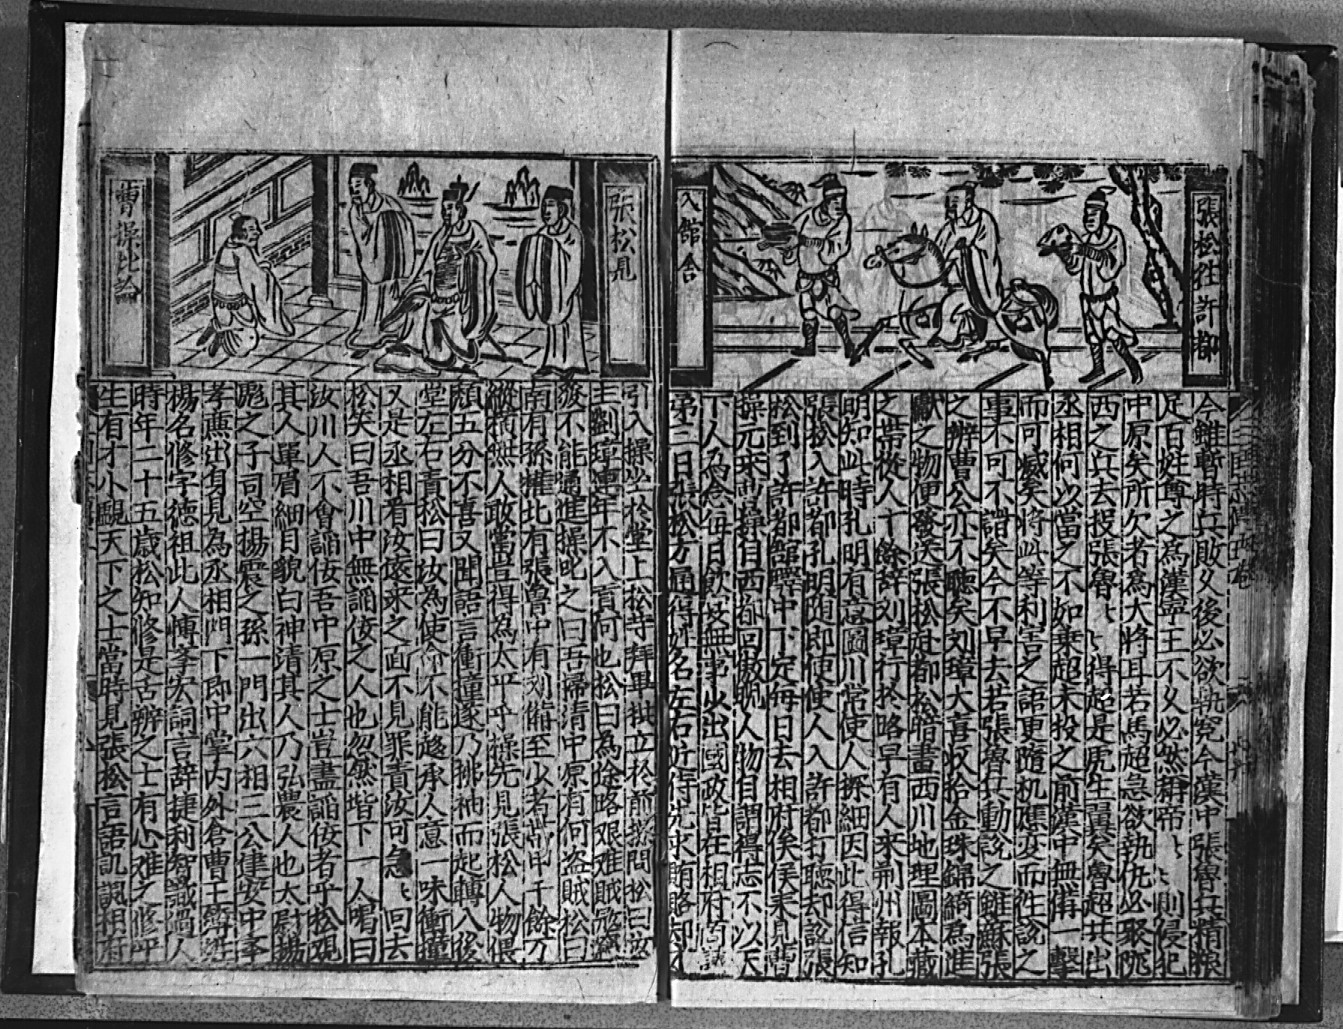 張松往許都
入館舍
今雖暫時兵敗久後必欲執寃今漢中張魯兵精糧
足百姓尊之為漢寧王不久必然稱帝〻〻則侵犯
中原矣所欠者為大將耳若馬超急欲執仇必聚隴
西之兵去投張魯〻〻得超是虎生翼矣魯超共出
丞相何以當之不如乗超未投之前漢中無備一擊
而可滅矣將此等利害之語更隨机應変而往說之
事不可不諧矣今不早去若張魯兵動說之雖蘇張
之辨曹公亦不聽矣刘璋大喜收拾金珠錦綺為進
獻之物便發送張松赴都松暗畫西川地理圖本藏
之帶從人十餘辞刘璋行於路早有人來荆州報孔
明知此時孔明有意圖川常使人探細因此得信知
張松入許都孔明随即使人入許都打聽却說張
松到了許都館驛中下定每日去相府俟候求見曹
操元來曹操自西都回傲睨人物自謂得志不以天
下人為念每日飲宴無事少出國政皆在相府商議
第三日張松方通得姓名左右近侍先求賄賂却
張松見
曹操比論
引入操坐於堂上松等拜畢拱立於前操問松曰汝
主劉璋連年不入貢何也松曰為途路艰难賊冦竊
發不能通進操叱之曰吾掃清中原有何盗賊松曰
南有孫權北有張魯中有刘俻至少者帶甲十餘万
縱横無人敢當豈得為太平乎操先見張松人物偎
頽五分不喜又聞語言衝撞遂乃拂袖而起轉入後
堂左右責松曰汝為使命不能趍承人意一味衝撞
又是丞相看汝遠來之面不見罪責汝可急〻回去
松笑曰吾川中無謟佞之人也忽然堦下一人喝曰
汝川人不會謟佞吾中原之士豈盡謟佞者乎松覌
其人單眉細目貌白神清其人乃弘農人也太尉楊
彪之子司空揚震之孫一門出六相三公建安中孝
孝亷出身見為丞相門下郎中掌内外倉曹主簿姓
楊名修字德祖此人博孝宏詞言辞捷利智識過人
時年二十五歳松知修是舌辨之士有心难之修平
生有才小覷天下之士當時見張松言語訊諷相府